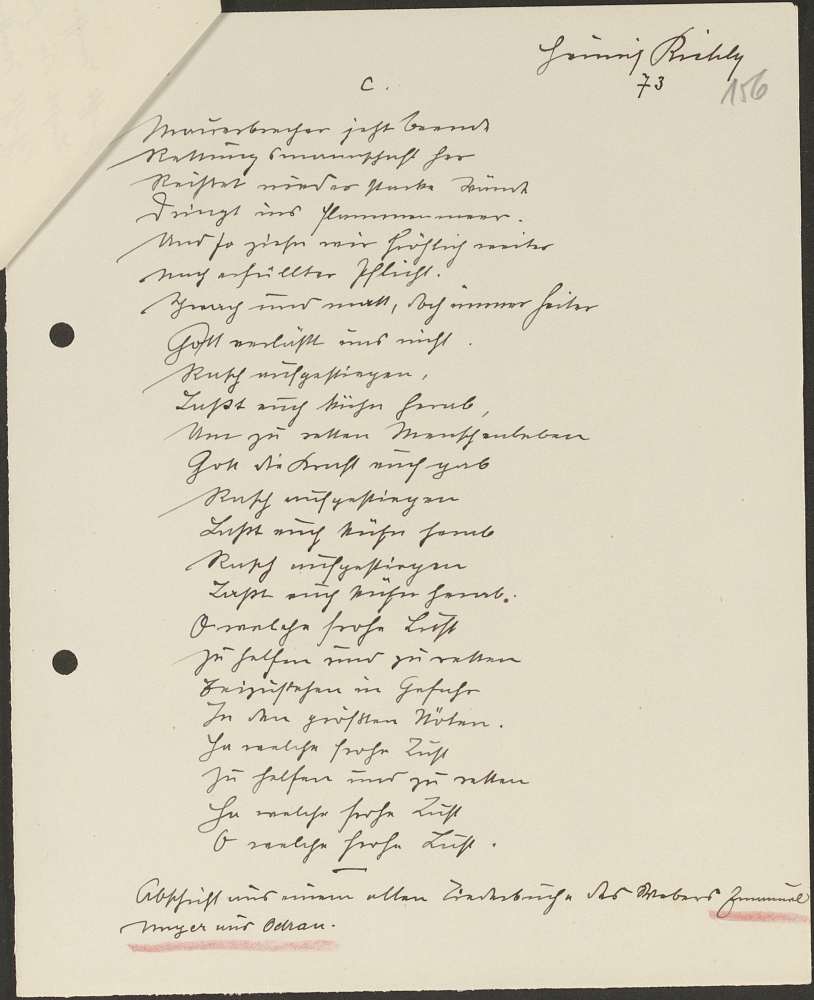 Heinrich Richly
73
156
C.
Mauerbrecher jetzt behende
Rettungsmannschaft her
Reißet nieder starke Wände
Dringt ins Flammenmeer.
Und so ziehn wir fröhlich weiter
nach erfüllter Pflicht.
Schwach und matt, doch immer heiter
Gott verläßt uns nicht.
Rasch aufgestiegen,
Laßt euch kühn herab,
Um zu retten Menschenleben
Gott die Kraft euch gab
Rasch aufgestiegen
Laßt euch kühn herab
Rasch aufgestiegen
Laßt euch kühn herab.
O welche frohe Lust
zu helfen und zu retten
Beizustehen in Gefahr
In den größten Nöten.
Ha welche frohe Lust
Zu helfen und zu retten
Ha welche frohe Lust
O welche frohe Lust.
Abschrift aus einem alten Liederbuche des Webers Emanuel
Mayer aus Odrau.